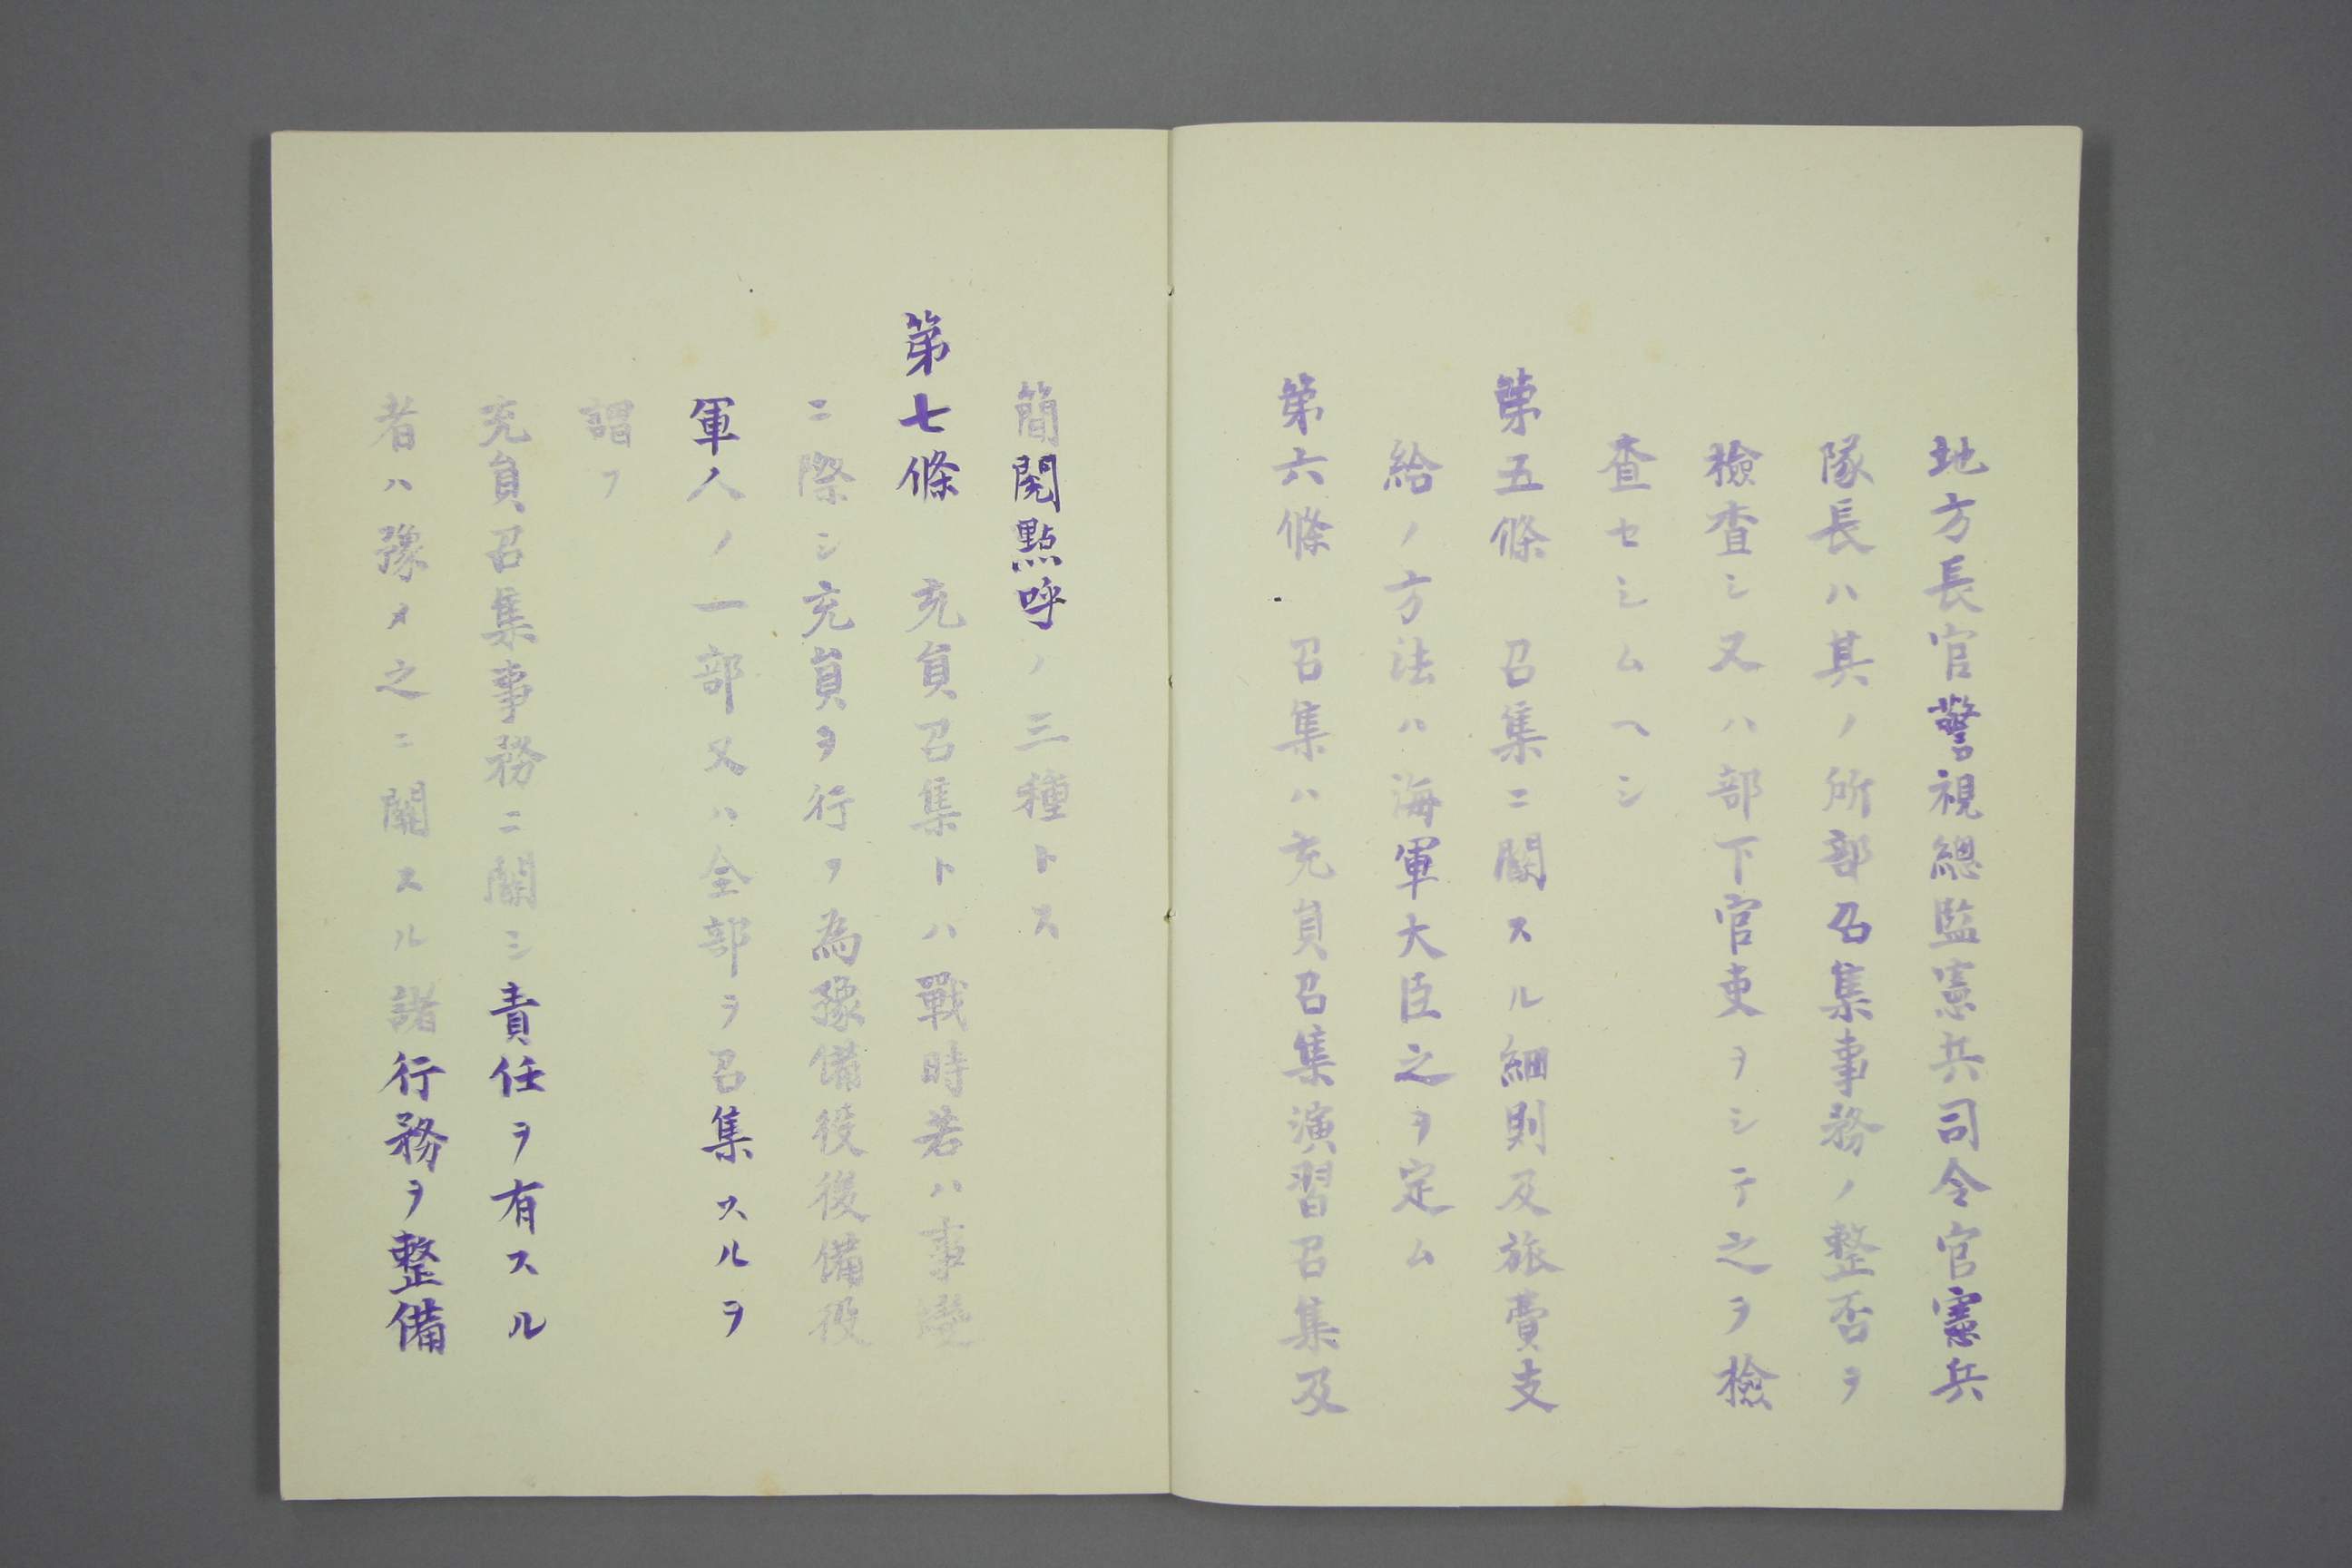 地方長官警視總監憲兵司令官憲兵
隊長ハ其ノ所部召集事務ノ整否ヲ
檢査シ又ハ部下官吏ヲシテ之ヲ檢
査セシムヘシ
第五條　召集ニ關スル細則及旅費支
給ノ方法ハ海軍大臣之ヲ定ム
第六條　召集ハ充員召集演習召集及
簡閱點呼ノ三種トス
第七條　充員召集トハ戰時若ハ事變
ニ際シ充員ヲ行フ為豫備役後備役
軍人ノ一部又ハ全部ヲ召集スルヲ
謂フ
充員召集事務ニ關シ責任ヲ有スル
者ハ豫メ之ニ關スル諸行務ヲ整備